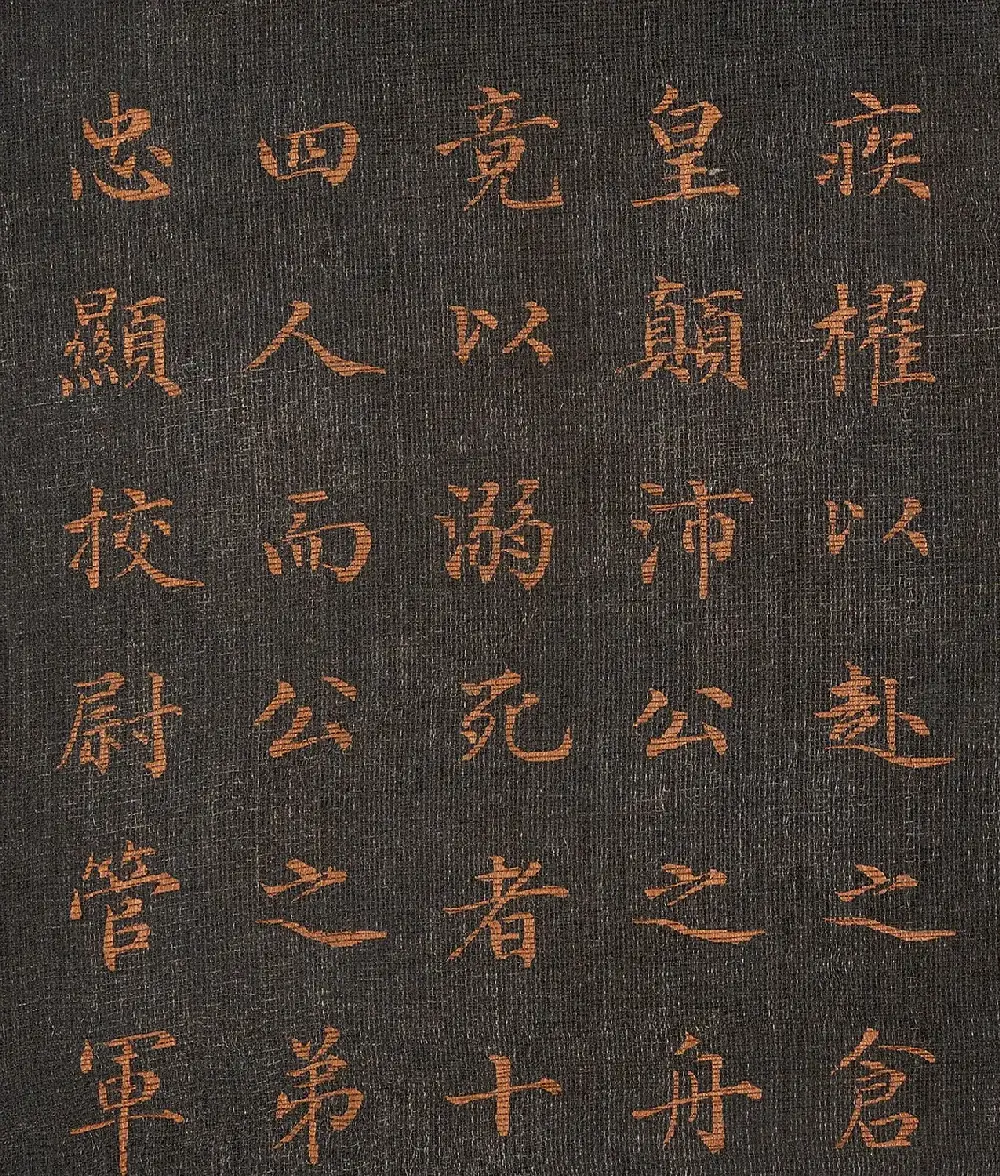 疾櫂以赴之倉
皇顛沛公之舟
竟以溺死者十
四人而公之弟
忠顯校尉管軍